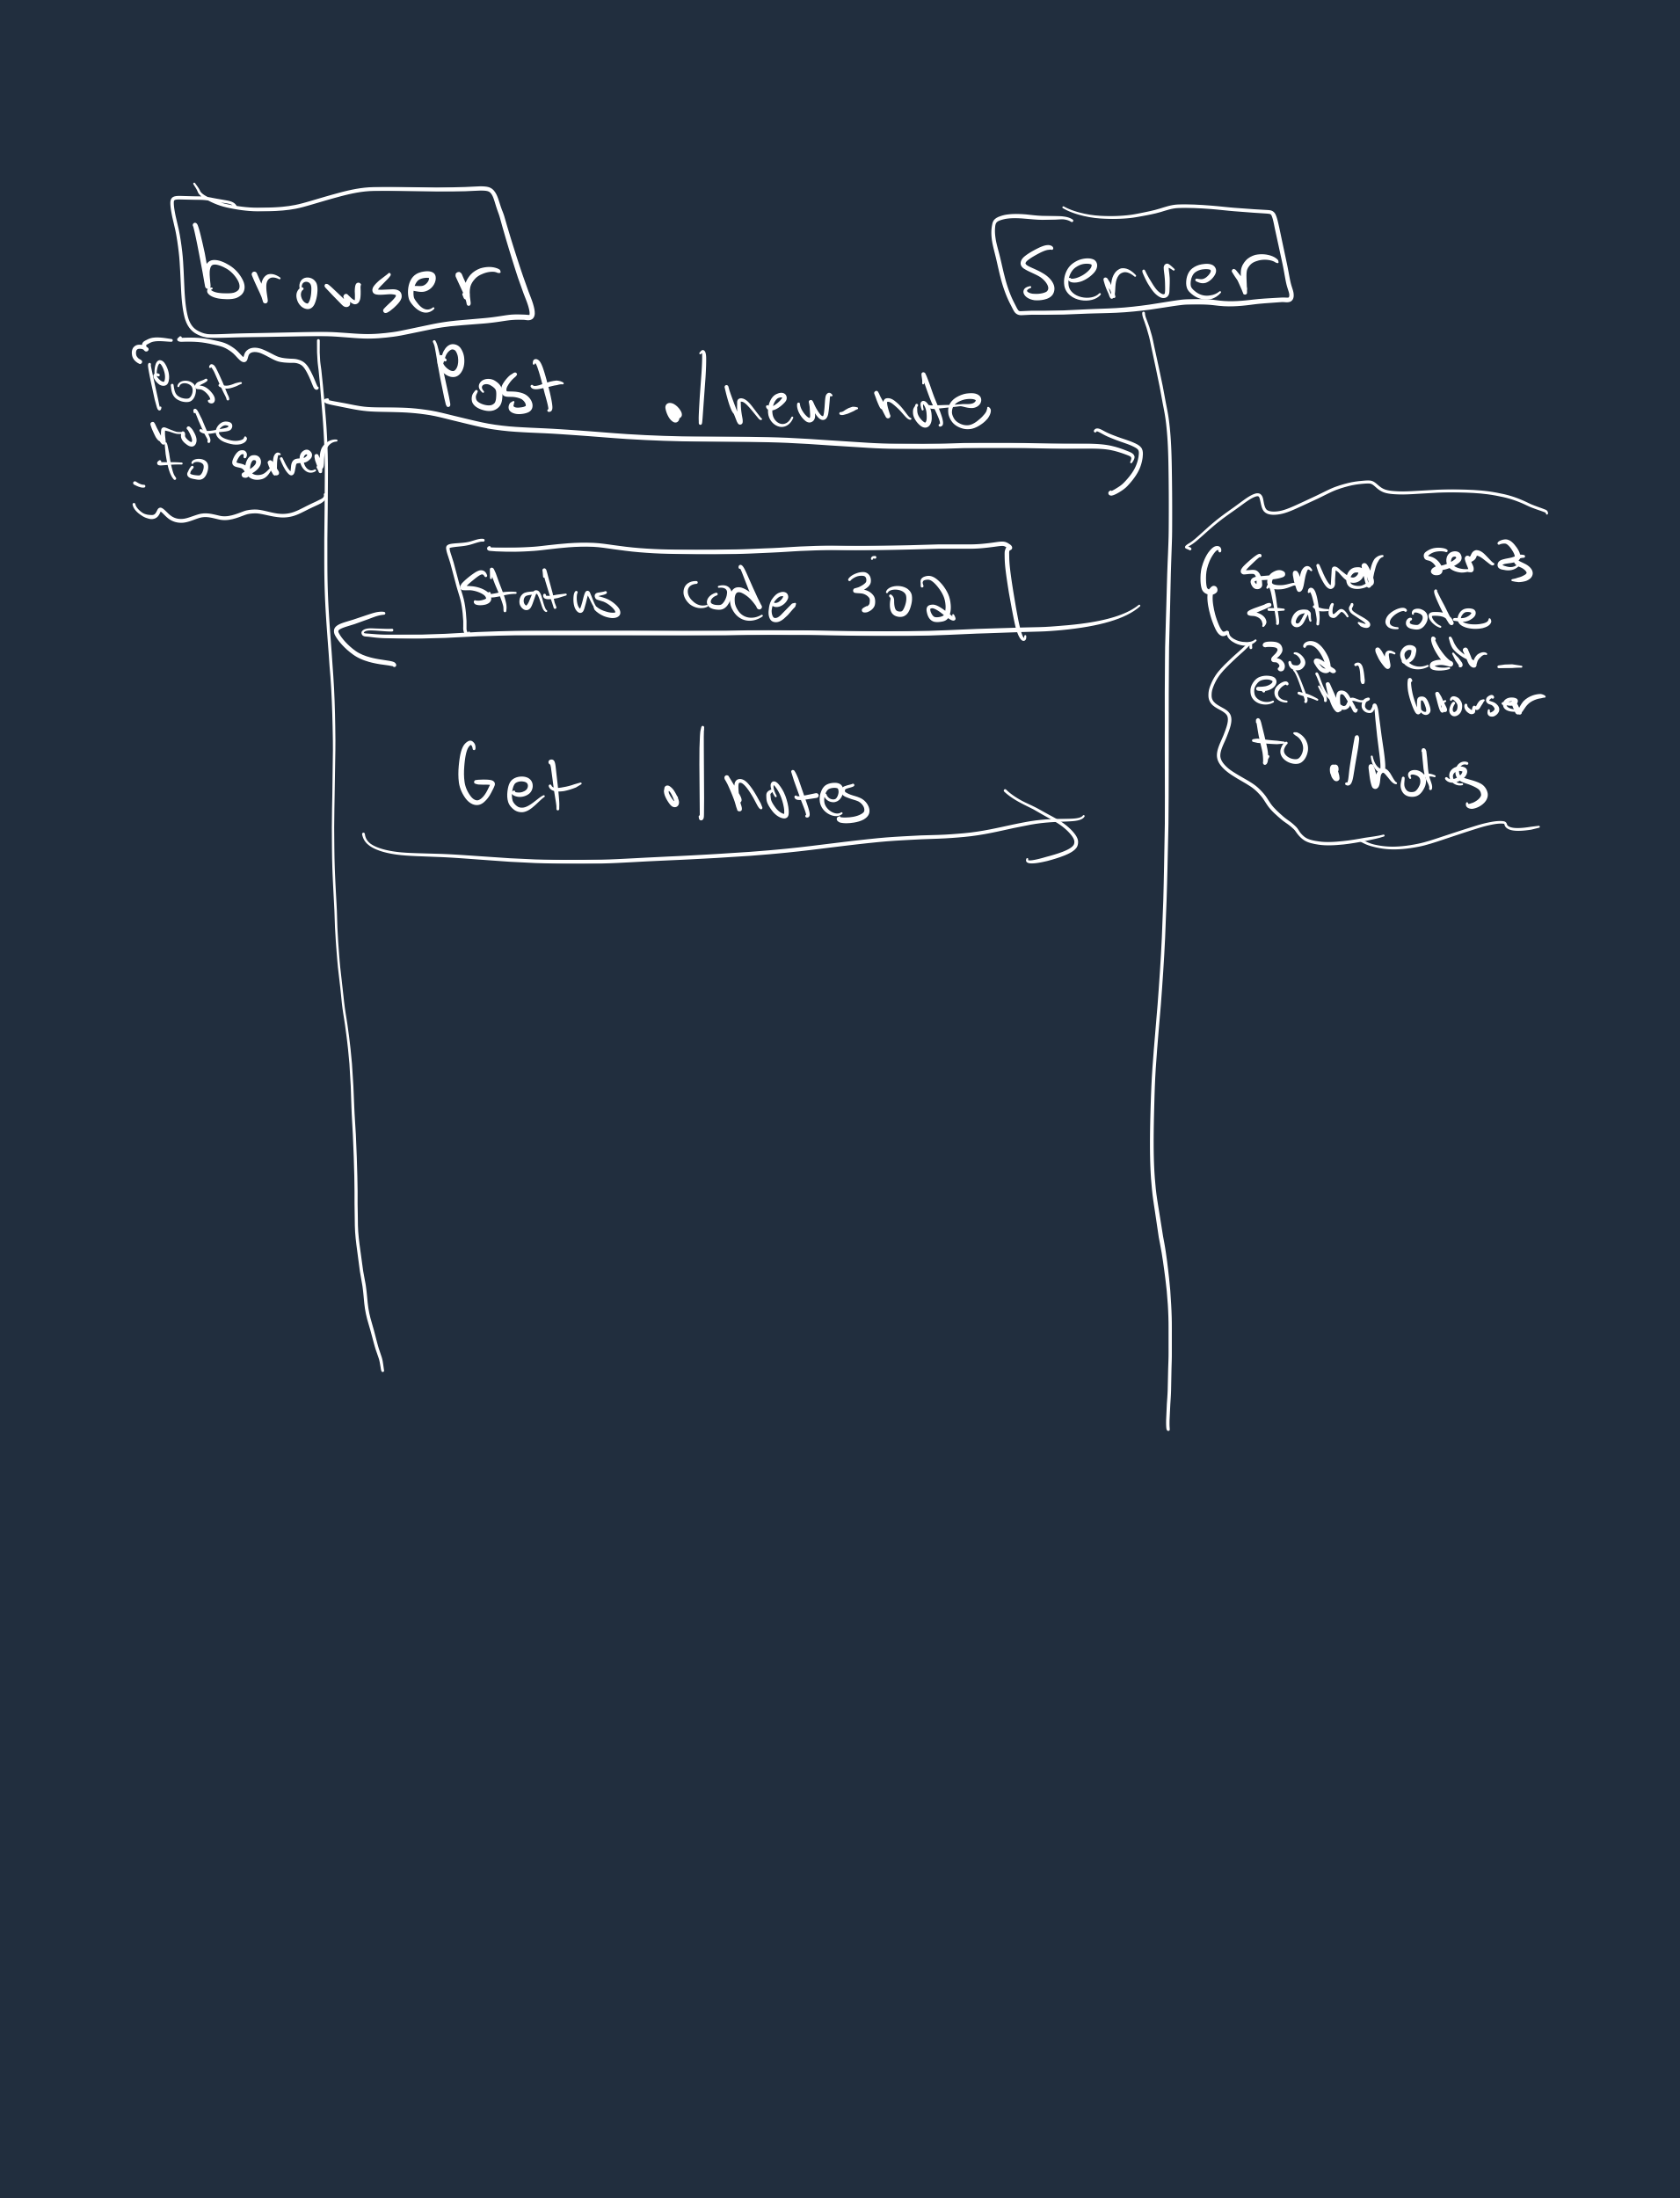 browser
Server
Post
note
to server
Post ./new-note
Status code 302
Server sends
status code
302, redir-
ecting browser
to ./notes
Get ./notes